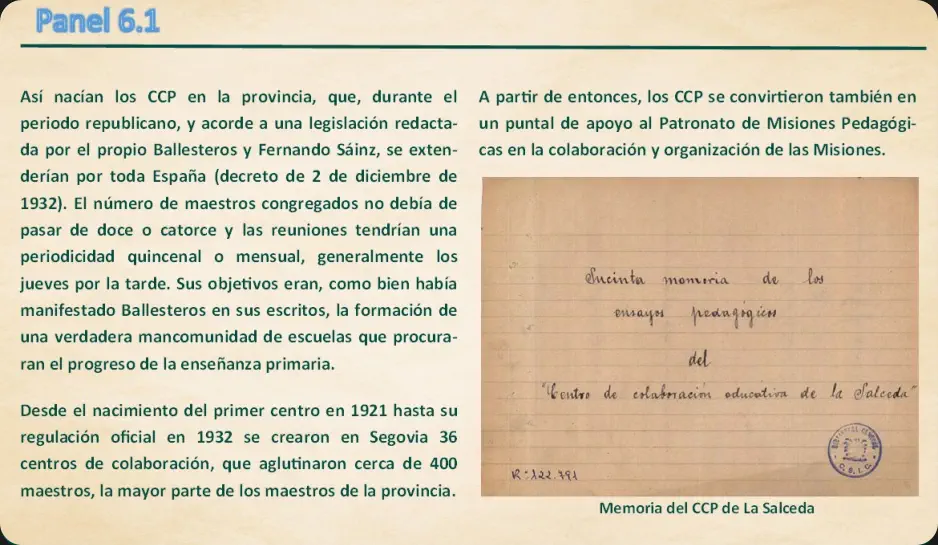 Panel 6.1
Así nacían los CCP en la provincia, que, durante el
periodo republicano, y acorde a una legislación redacta-
da por el propio Ballesteros y Fernando Sáinz, se exten-
derían por toda España (decreto de 2 de diciembre de
1932). El número de maestros congregados no debía de
pasar de doce o catorce y las reuniones tendrían una
periodicidad quincenal o mensual, generalmente los
jueves por la tarde. Sus objetivos eran, como bien había
manifestado Ballesteros en sus escritos, la formación de
una verdadera mancomunidad de escuelas que procura-
ran el progreso de la enseñanza primaria.
Desde el nacimiento del primer centro en 1921 hasta su
regulación oficial en 1932 se crearon en Segovia 36
centros de colaboración, que aglutinaron cerca de 400
maestros, la mayor parte de los maestros de la provincia.
A partir de entonces, los CCP se convirtieron también en
un puntal de apoyo al Patronato de Misiones Pedagógi-
cas en la colaboración y organización de las Misiones.
Sucinta memoria de los
ensayos pedagógicos
del
"Centro de colaboración educativa de la Salceda"
R-122.791
C.S.I.C.
Memoria del CCP de La Salceda